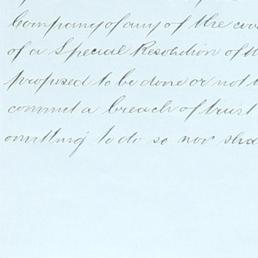 Company of any of the cov
of a Special Resolution of th
proposed to be done or not t
commit a breach of trust
omitting to do so nor shal